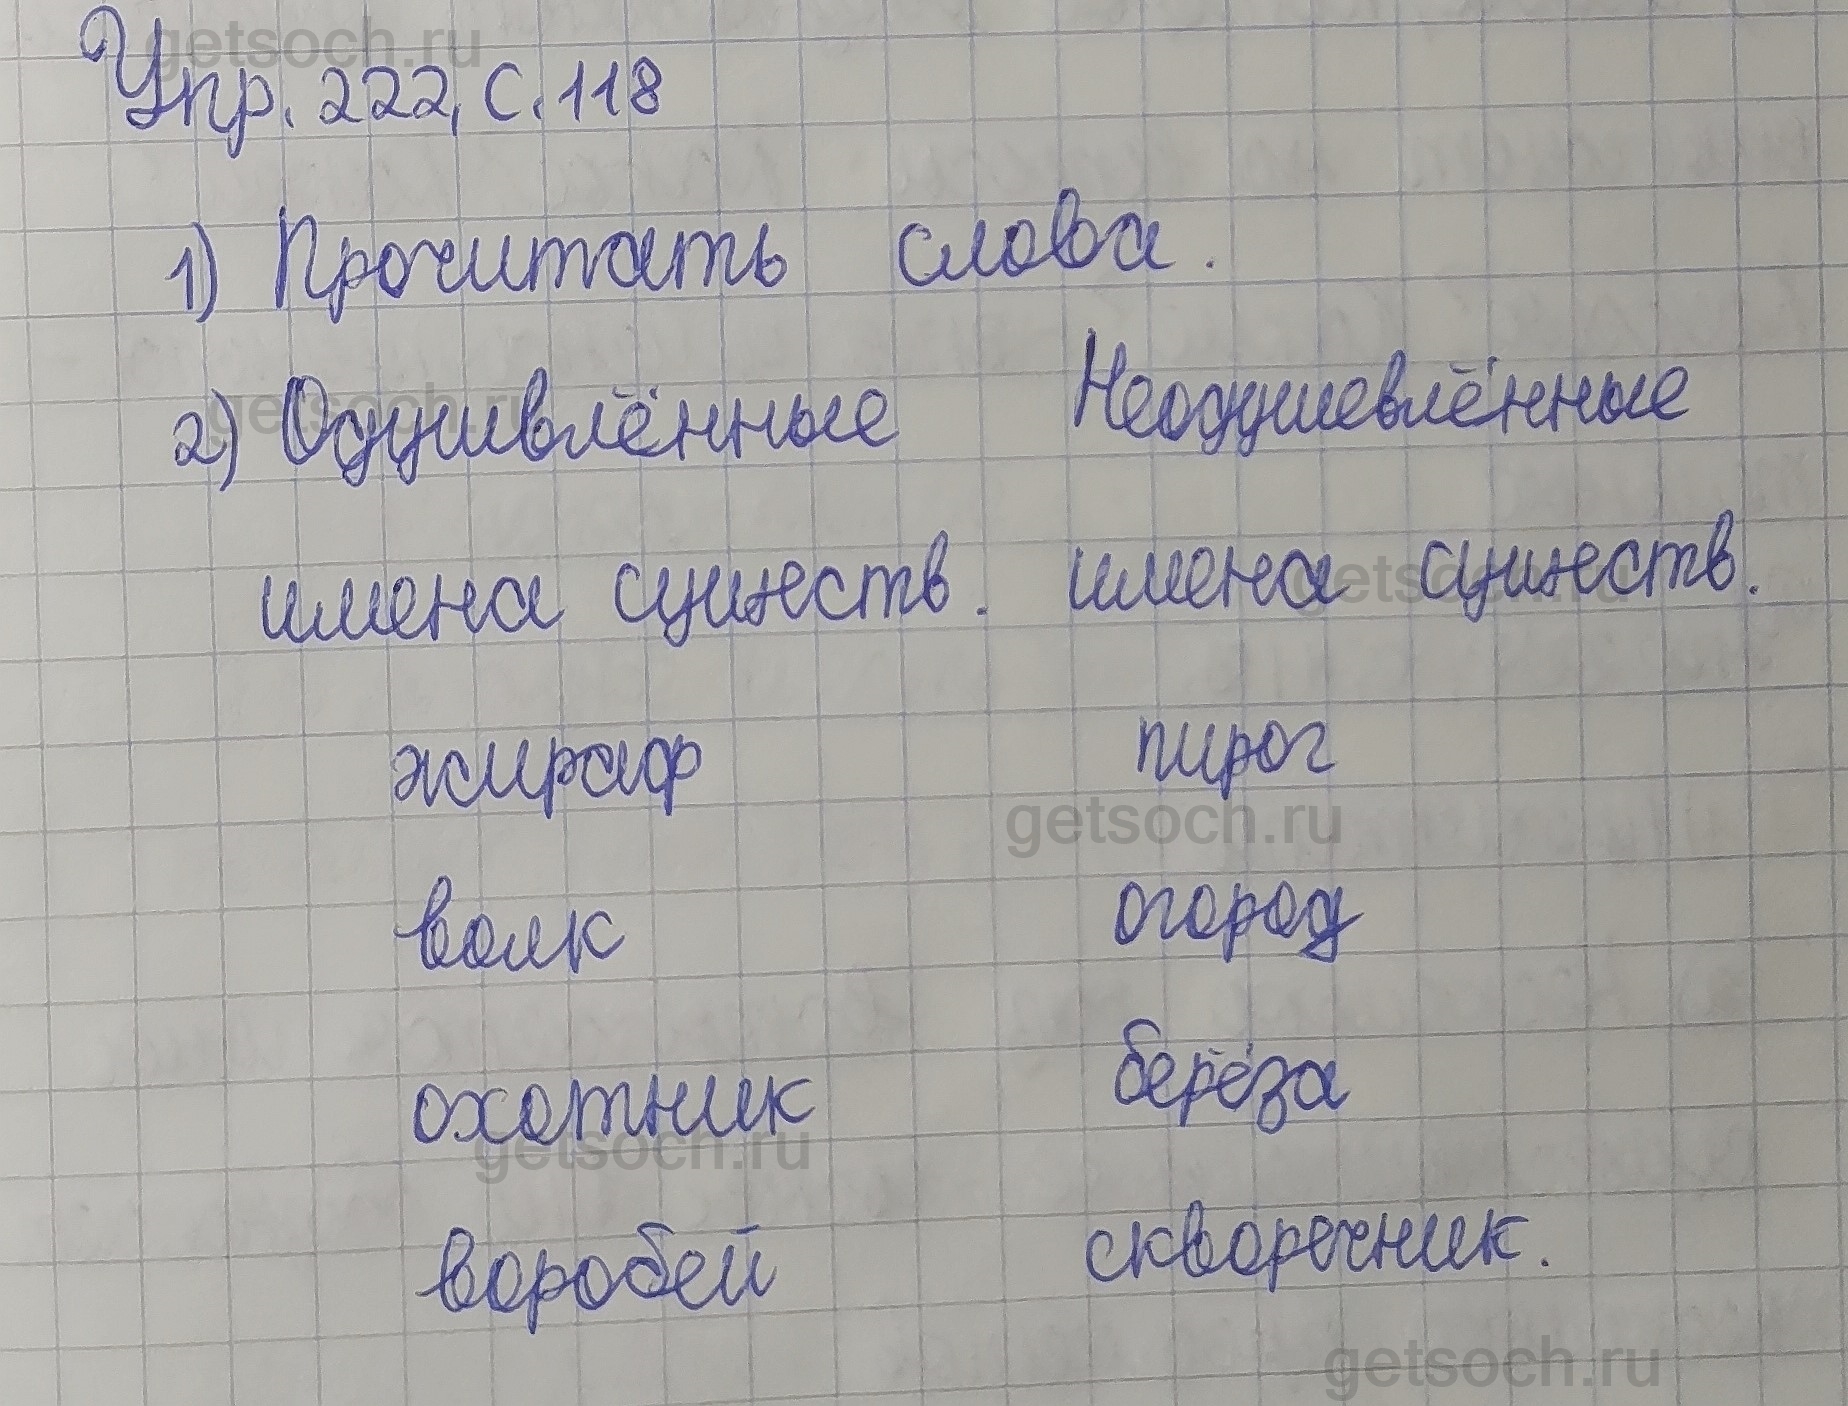 Упр. 222, с. 118
1) Прочитать слова.
2) Одушевлённые Неодушевлённые
имена существ. имена существ.
жираф пирог
волк огород
охотник берёза
воробей скворечник.
getsoch.ru
getsoch.ru
getsoch.ru
getsoch.ru
getsoch.ru
getsoch.ru